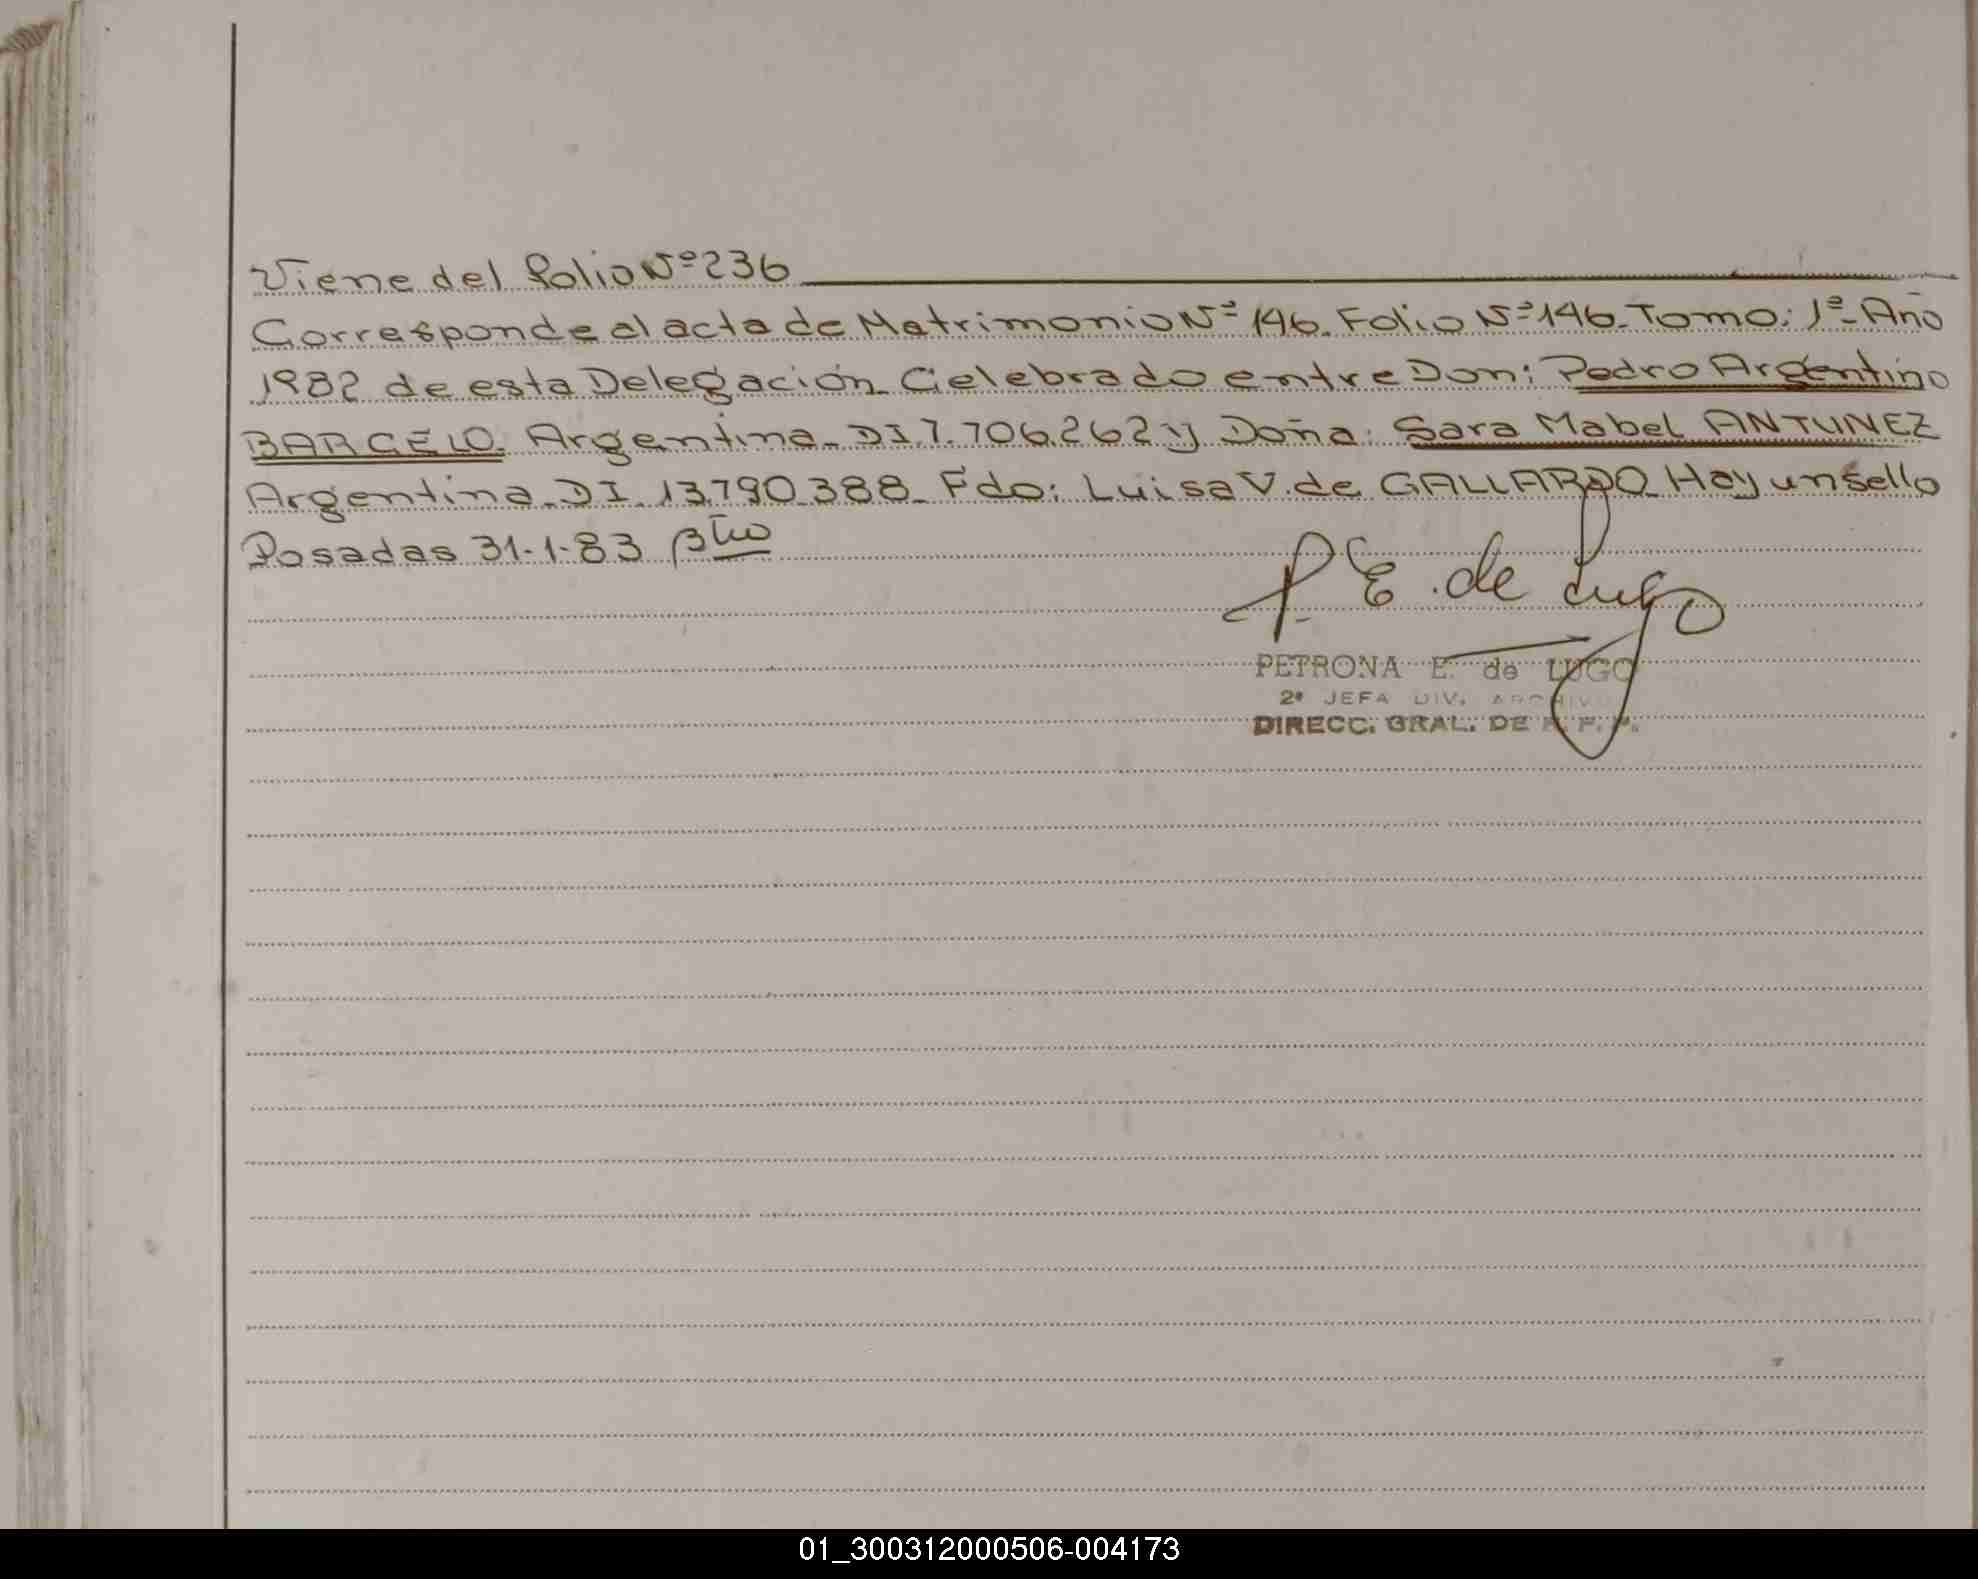 Viene del folio Nº 236
Corresponde al acta de Matrimonio Nº 146. Folio Nº 146. Tomo: 1º- Año
1982 de esta Delegación Celebrado entre Don: Pedro Argentino
BARCELO. Argentina. DI 7.706.262 y Doña: Sara Mabel ANTUNEZ
Argentina. DI. 13.790.388. Fdo: Luisa V. de GALLARDO. Hay un sello
Posadas 31-1-83
P. E. de Lugo
PETRONA E. de LUGO
2º JEFA DIV. ARCHIVO
DIRECC. GRAL. DE R. P. P.
01_300312000506-004173